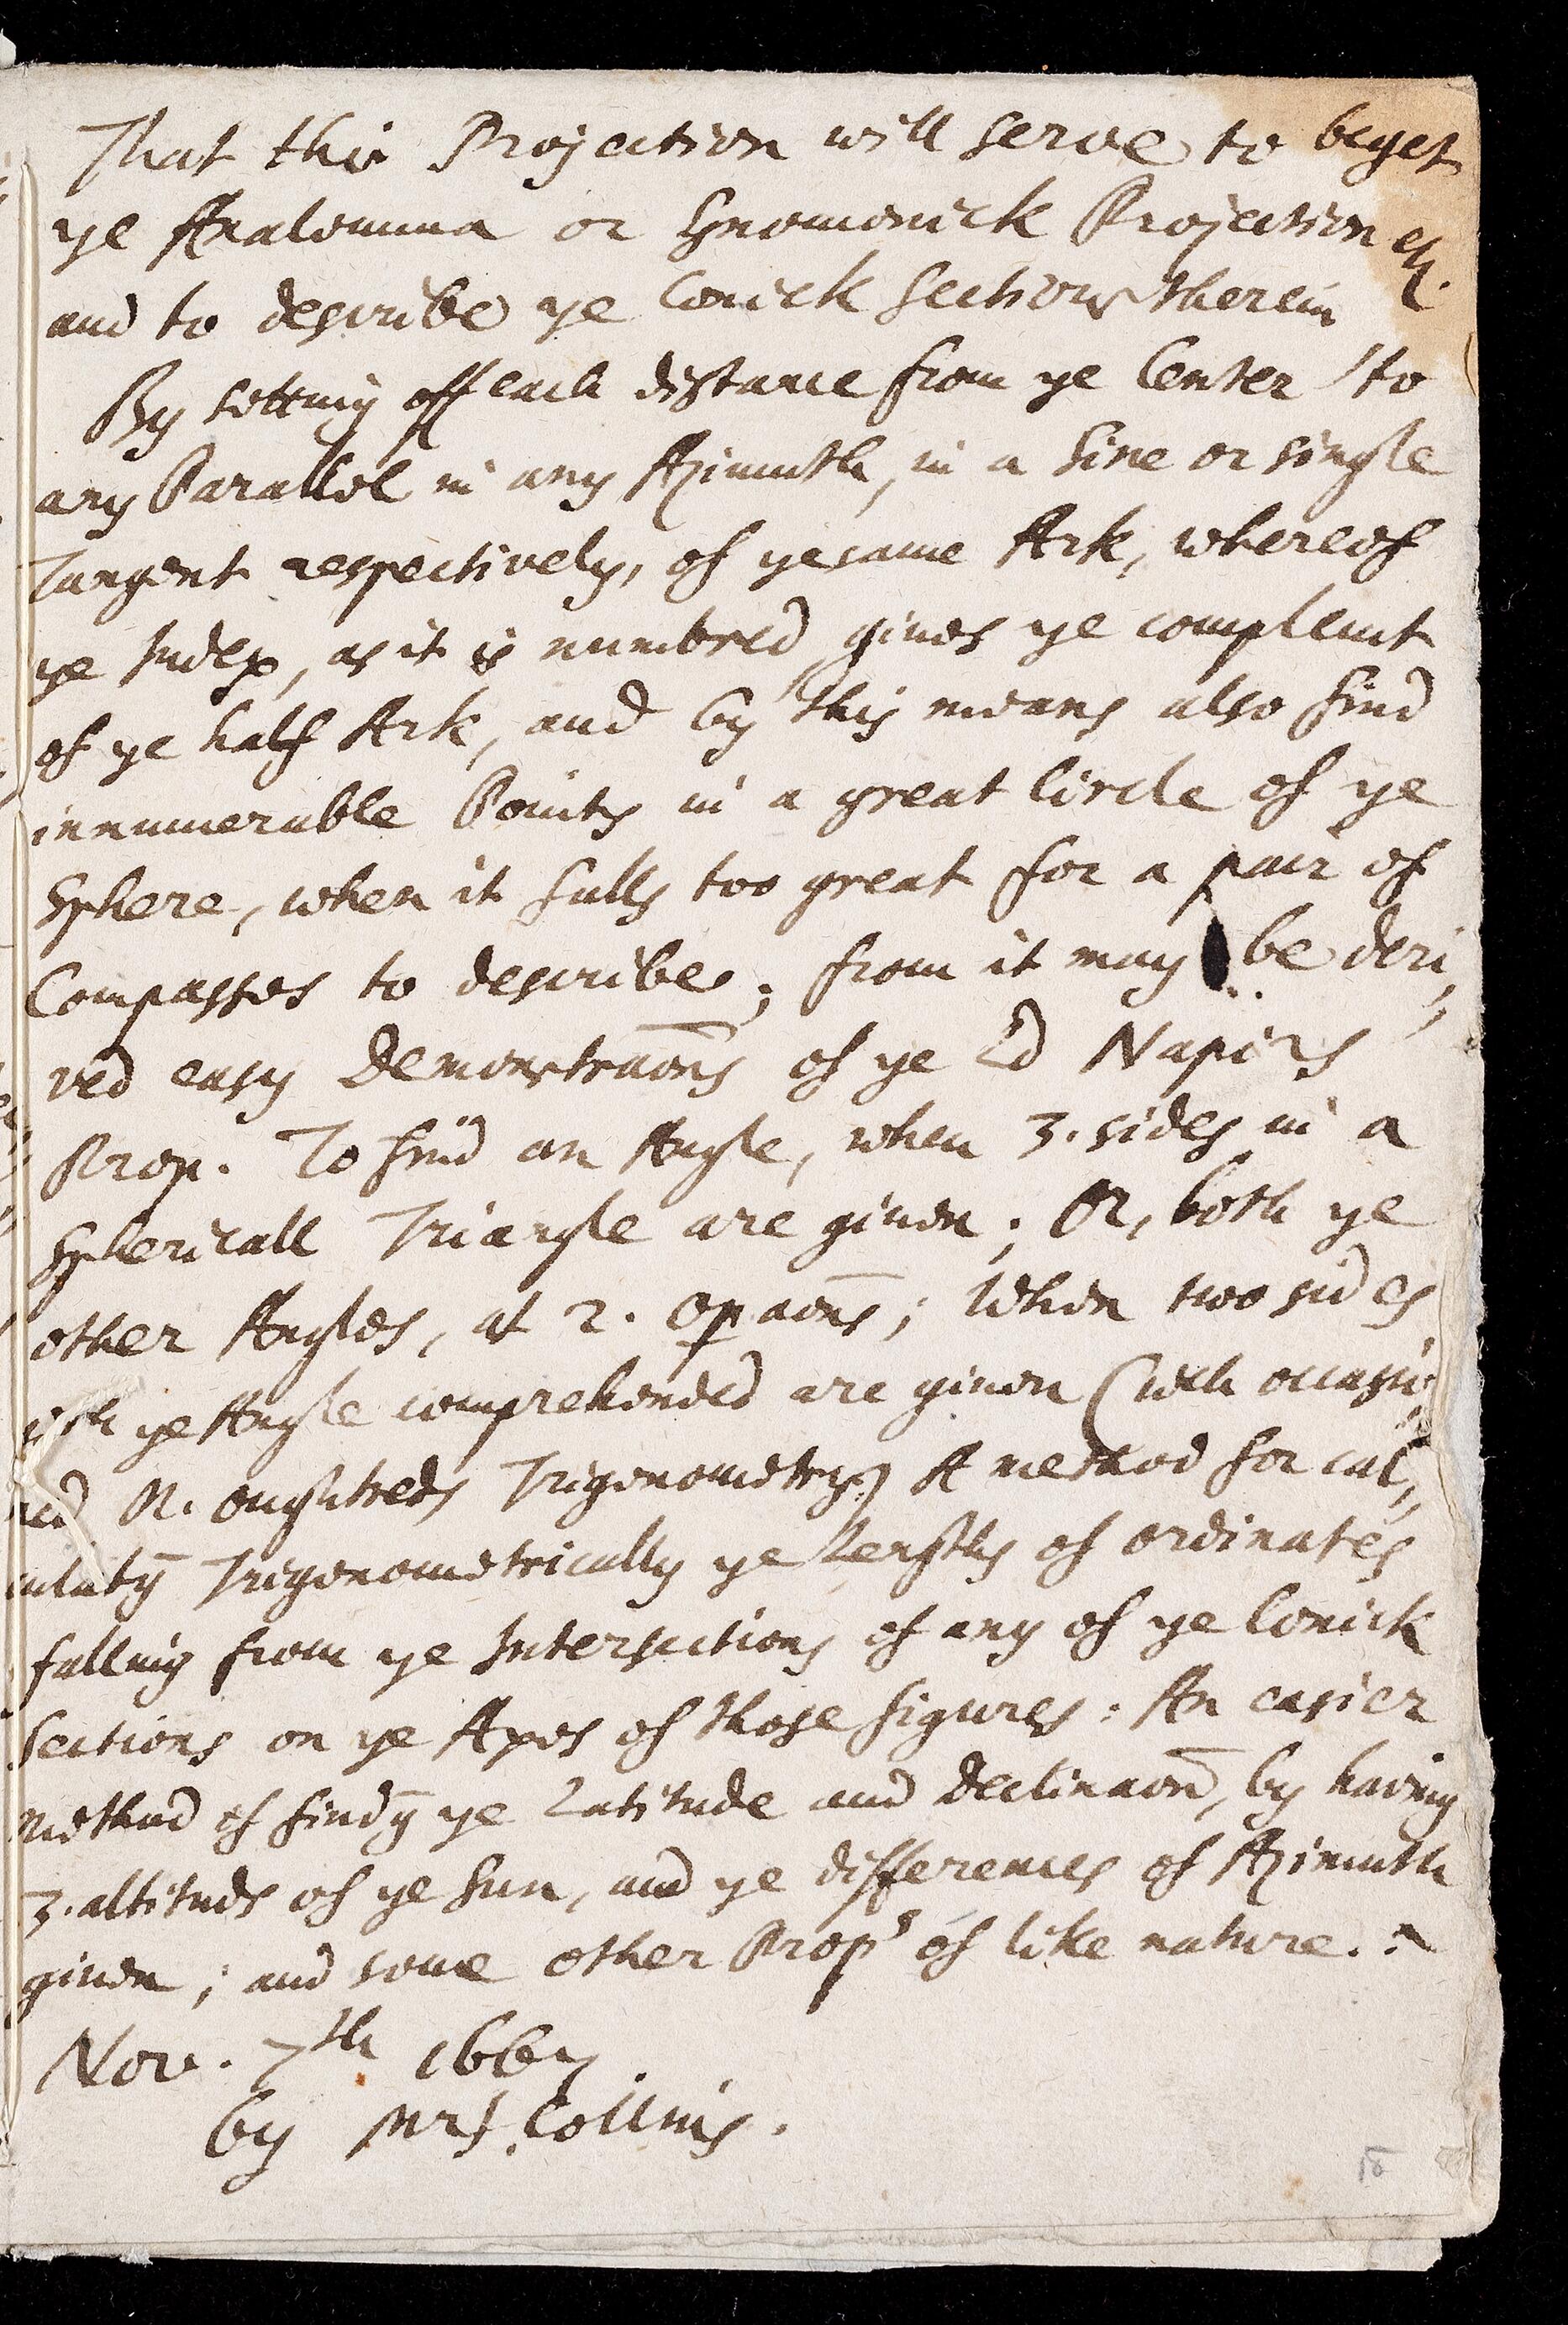 That this Projection will serve to beget
ye Analemma or Gnomonick Projection
and to describe ye Conick Sections therein
By setting off each distance from ye Center to
any Parallel in any Azimuth, in a Sine or single
Tangent respectively, of ye same Ark, whereof
ye Index, as it is numbred gives ye complemt
of ye half Ark, and by this means also find
innumerable Points in a great Circle of ye
Sphere, when it falls too great for a pair of
Compasses to describe; from it may be deri,
ved easy Demonstraōns of ye Ld Napiers
Prop. To find an Angle, when 3. sides in a
Sphericall Triangle are given; Or, both ye
other Angles, at 2. Opaōns; When two sides
wth ye Angle comprehended are given (wch occasio,
ned Mr. Oughtreds Trigonometry) A method for cal,,
culatḡ Trigonometrically ye Lengths of ordinates
falling from ye Intersections of any of ye Conick
Sections on ye Axes of those figures: An easier
method of findḡ ye Latitude and Declinaōn, by having
3. altituds of ye Sun, and ye differences of Azimuth
given; and some other Props of like nature.
Nov. 7th 1667
by Mr J. Collins.
18